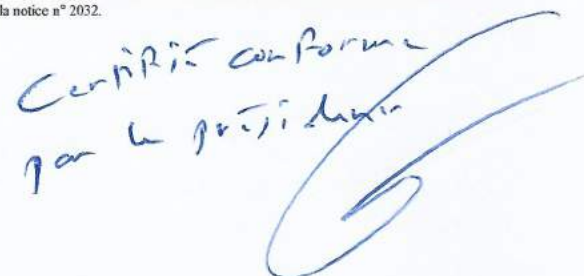 la notice n° 2032.
Certifié conforme
par le président